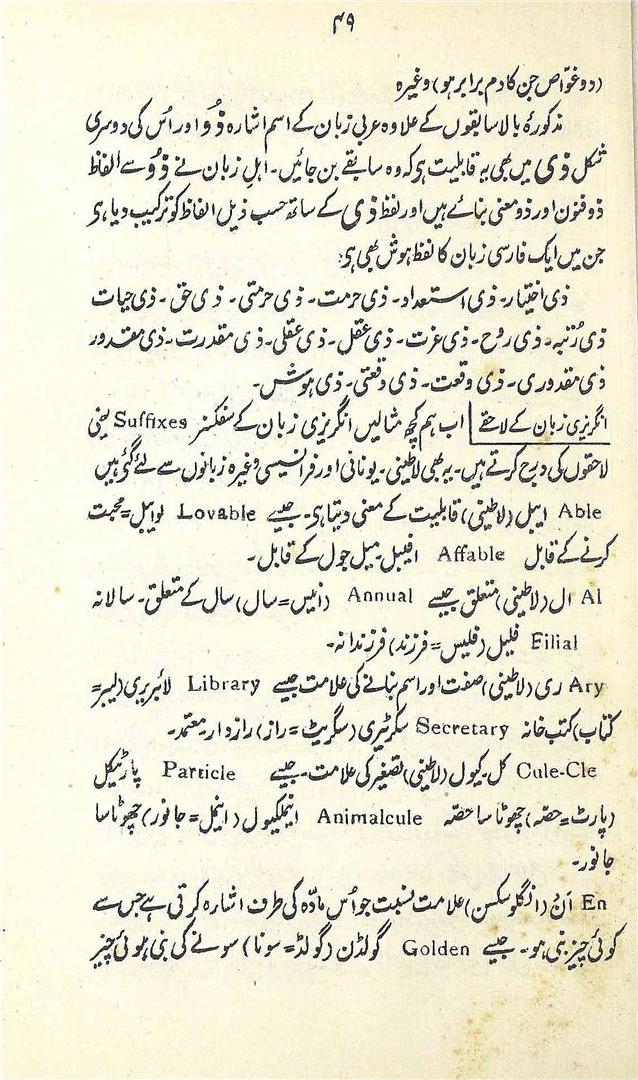 ۴۹
(دو غوّاص جن کا دم برابر ہو) وغیرہ
مذکورۂ بالا سابقوں کے علاوہ عربی زبان کے اسم اشارہ ذُو اور اُس کی دوسری
شکل ذی میں بھی یہ قابلیت ہی کہ وہ سابقے بن جائیں۔ اہلِ زبان نے ذُو سے الفاظ
ذو فنون اور ذو معنی بنائے ہیں اور لفظ ذی کے ساتھ حسب ذیل الفاظ کو ترکیب دیا ہی
جن میں ایک فارسی زبان کا لفظ ہوش بھی ہی:
ذی اختیار۔ ذی استعداد۔ ذی حرمت۔ ذی حرمتی۔ ذی حق۔ ذی حیات
ذی رُتبہ۔ ذی روح۔ ذی عزت۔ ذی عقل۔ ذی عقلی۔ ذی مقدرت۔ ذی مقدور
ذی مقدوری۔ ذی وقعت۔ ذی وقعتی۔ ذی ہوش۔
انگریزی زبان کے لاحقے اب ہم کچھ مثالیں انگریزی زبان کے سفکسز Suffixes یعنی
لاحقوں کی درج کرتے ہیں۔ یہ بھی لاطینی۔ یونانی اور فرانسیسی وغیرہ زبانوں سے لئے گئے ہیں
Able ایبل (لاطینی) قابلیت کے معنی دیتا ہی۔ جیسے Lovable لوایبل = محبت
کرنے کے قابل Affable افیبل۔ میل جول کے قابل۔
Al ال (لاطینی) متعلق جیسے Annual (انیس = سال) سال کے متعلق۔ سالانہ
Eilial فلیل (فلیس = فرزند) فرزندانہ۔
Ary ری (لاطینی) صفت اور اسم بنانے کی علامت جیسے Library لائبریری (لیبر =
کتاب) کتب خانہ Secretary سکرٹیری (سکریٹ = راز) رازدار۔ معتمد۔
Cule-Cle کل۔ کیول (لاطینی) تصغیر کی علامت۔ جیسے Particle پارٹیکل
(پارٹ = حصّہ) چھوٹا سا حصّہ Animalcule اینملکیول (انیمل = جانور) چھوٹا سا
جانور۔
En اَنْ (اینگلوسکسن) علامت نسبت جو اُس مادّہ کی طرف اشارہ کرتی ہے جس سے
کوئی چیز بنی ہو۔ جیسے Golden گولڈن (گولڈ = سونا) سونے کی بنی ہوئی چیز